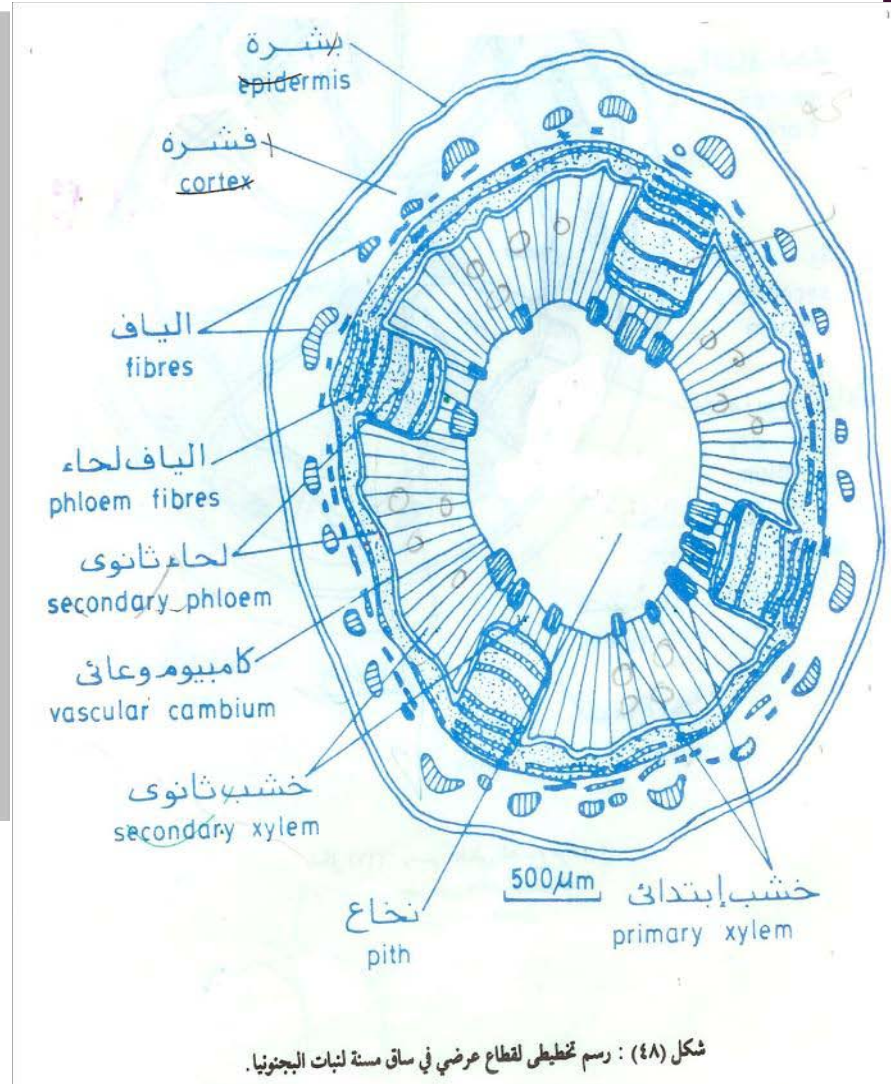 بشرة
epidermis
قشرة
cortex
الياف
fibres
الياف لحاء
phloem fibres
لحاء ثانوى
secondary phloem
كامبيوم وعائى
vascular cambium
خشب ثانوى
secondary xylem
نخاع
pith
500μm
خشب إبتدائى
primary xylem
شكل (٤٨) : رسم تخطيطى لقطاع عرضي في ساق مسنة لنبات البجنونيا.